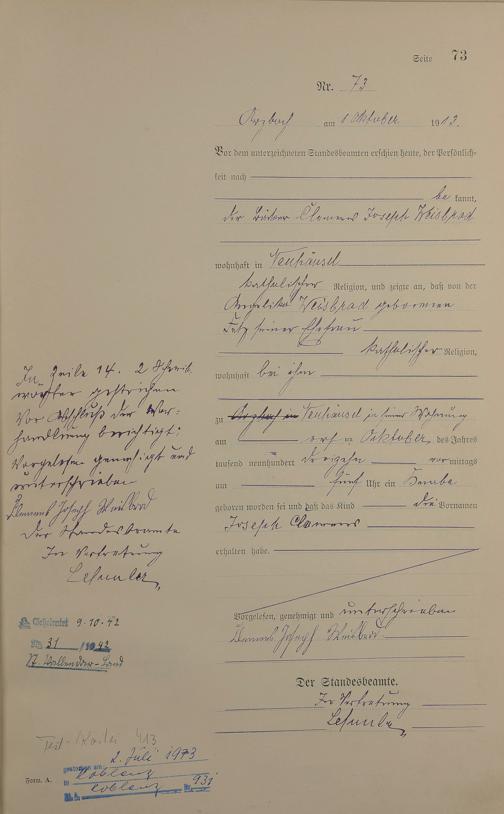 Seite 73
Nr. 73
Arzbach am 1 Oktober 1913.
Vor dem unterzeichneten Standesbeamten erschien heute, der Persönlich-
keit nach
be kannt,
der Clemens Joseph Weisbrod
wohnhaft in Neuhäusel
katholischer Religion, und zeigte an, daß von der
Angelika Weisbrod geborenen
seiner Ehefrau
katholischer Religion,
wohnhaft bei ihm
zu Arzbach in Neuhäusel in seiner Wohnung
am Oktober des Jahres
tausend neunhundert dreizehn vormittags
um fünf Uhr ein Knabe
geboren worden sei und daß das Kind die Vornamen
Joseph Clemens
erhalten habe.
Vorgelesen, genehmigt und unterschrieben
Clemens Joseph Weisbrod
Der Standesbeamte.
In Vertretung
In Zeile 14. 2 Schreib
wörter gestrichen
Vor Abschluß der Ver-
handlung berichtigt:
Vorgelesen genehmigt und
unterschrieben
Clemens Joseph Weisbrod
Der Standesbeamte
In Vertretung
9.10.42
Nr. 31 /1942
St. Vallendar-Land
413
gestorben am 2. Juli 1973
in Koblenz
Koblenz Nr. 931
Form. A.